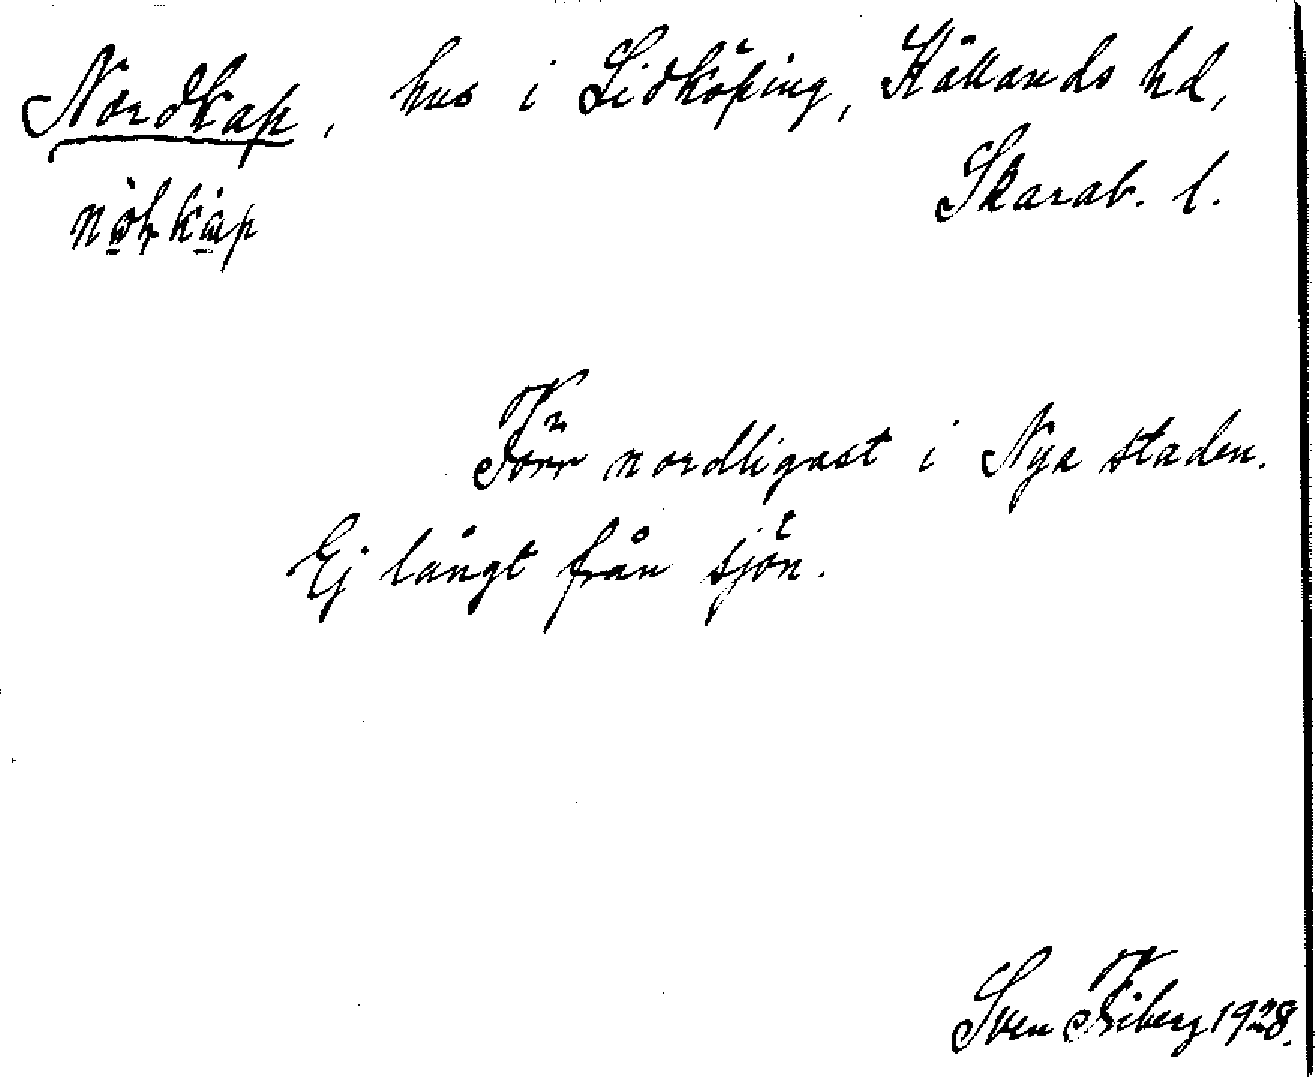 Nordkap, hus i Lidköping, Kållands hd,
Skarab. l.
Förr nordligast i Nya staden.
Ej långt från sjön.
Sven Fiberg 1928.